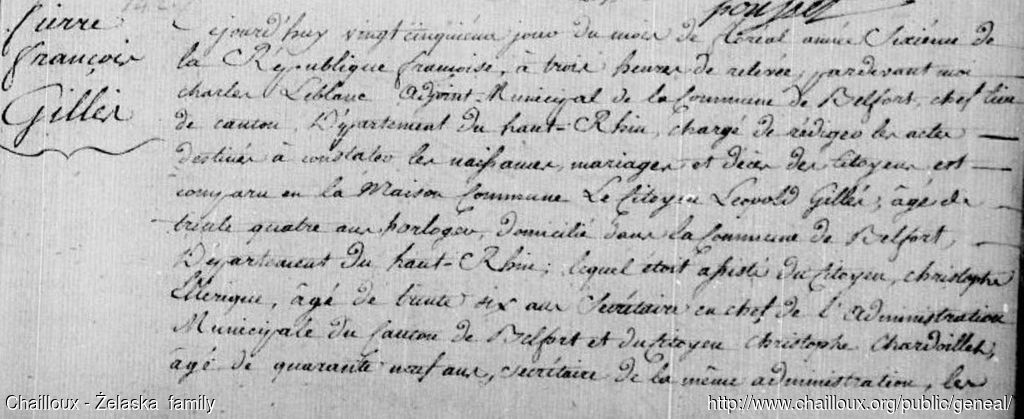 Pierre
françois
Gillés
ejourd'huy vingt cinquieme jour du mois de floreal année Sixiéme de
la République françoise, à trois heures de relevée, pardevant moi
charles Leblanc adjoint-Municipal de la Commune de Belfort, chef lieu
de canton, Département du haut-Rhin, chargé de rédiger les actes
destinés à constater les naissances, mariages et décès des Citoyens est
comparu en la Maison Commune Le Citoyen Leopold Gillés, âgé de
trente quatre ans horloger, domicilié dans la Commune de Belfort,
Département du haut-Rhin; lequel étoit assisté du Citoyen, christophe
âgé de trente six ans Secrétaire en chef de l'administration
Municipale du Canton de Belfort et du Citoyen christophe Chardoillet,
âgé de quarante neuf ans, secrétaire de la même administration, les
Chailloux - Żelaska family
http://www.chailloux.org/public/geneal/